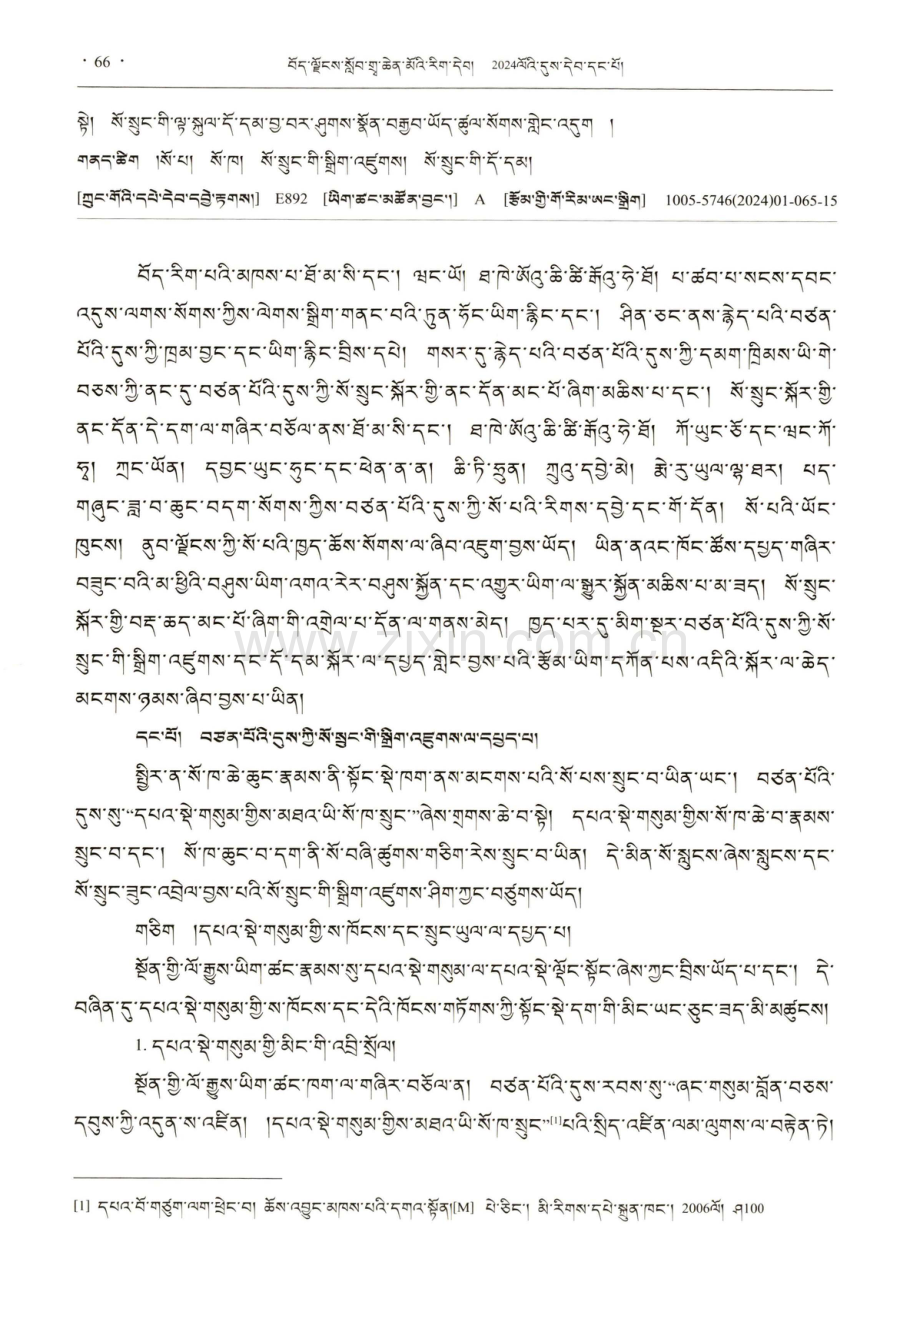 · 66 ·
བོད་ལྗོངས་སློབ་གྲྭ་ཆེན་མོའི་རིག་དེབ། 2024ལོའི་དུས་དེབ་དང་པོ།
སྟེ། སོ་སྲུང་གི་ལྟ་སྐུལ་དོ་དམ་བྱ་བར་ཤུགས་སྣོན་བརྒྱབ་ཡོད་ཚུལ་སོགས་གླེང་འདུག །
གནད་ཚིག །སོ་པ། སོ་ཁ། སོ་སྲུང་གི་སྒྲིག་འཛུགས། སོ་སྲུང་གི་དོ་དམ།
[ཀྲུང་གོའི་དཔེ་དེབ་དབྱེ་རྟགས།] E892 [ཡིག་ཚང་མཚོན་བྱང་།] A [རྩོམ་གྱི་གོ་རིམ་ཨང་སྒྲིག] 1005-5746(2024)01-065-15
བོད་རིག་པའི་མཁས་པ་ཐོ་མ་སི་དང་། ཝང་ཡོ། ཐ་ཁེ་ཨོའུ་ཆི་ཚི་རྒོའུ་ཧེ་ཐོ། པ་ཚབ་པ་སངས་དབང་
འདུས་ལགས་སོགས་ཀྱིས་ལེགས་སྒྲིག་གནང་བའི་ཏུན་ཧོང་ཡིག་རྙིང་དང་། ཤིན་ཅང་ནས་རྙེད་པའི་བཙན་
པོའི་དུས་ཀྱི་ཁྲམ་བྱང་དང་ཡིག་རྙིང་བྲིས་དཔེ། གསར་དུ་རྙེད་པའི་བཙན་པོའི་དུས་ཀྱི་དམག་ཁྲིམས་ཡི་གེ་
བཅས་ཀྱི་ནང་དུ་བཙན་པོའི་དུས་ཀྱི་སོ་སྲུང་སྐོར་གྱི་ནང་དོན་མང་པོ་ཞིག་མཆིས་པ་དང་། སོ་སྲུང་སྐོར་གྱི་
ནང་དོན་དེ་དག་ལ་གཞིར་བཅོལ་ནས་ཐོ་མ་སི་དང་། ཐ་ཁེ་ཨོའུ་ཆི་ཚི་རྒོའུ་ཧེ་ཐོ། ཀོ་ཡུང་ཅོ་དང་ཝང་ཀོ་
ཧྭ། ཀྲང་ཡོན། དབྱང་ཡུང་ཧུང་དང་ཕེན་ན་ན། ཆི་ཏི་ཧྲུན། ཀྲུའུ་དབྱེ་མེ། རྨེ་རུ་ཡུལ་ལྷ་ཐར། པད་
གཞུང་ཟླ་བ་ཆུང་བདག་སོགས་ཀྱིས་བཙན་པོའི་དུས་ཀྱི་སོ་པའི་རིགས་དབྱེ་དང་གོ་དོན། སོ་པའི་ཡོང་
ཁུངས། ནུབ་ལྗོངས་ཀྱི་སོ་པའི་ཁྱད་ཆོས་སོགས་ལ་ཞིབ་འཇུག་བྱས་ཡོད། ཡིན་ནའང་ཁོང་ཚོས་དཔྱད་གཞིར་
བཟུང་བའི་མ་ཕྱིའི་བཤུས་ཡིག་འགའ་རེར་བཤུས་སྐྱོན་དང་འགྱུར་ཡིག་ལ་སྒྱུར་སྐྱོན་མཆིས་པ་མ་ཟད། སོ་སྲུང་
སྐོར་གྱི་བརྡ་ཆད་མང་པོ་ཞིག་གི་འགྲེལ་པ་དོན་ལ་གནས་མེད། ཁྱད་པར་དུ་མིག་སྔར་བཙན་པོའི་དུས་ཀྱི་སོ་
སྲུང་གི་སྒྲིག་འཛུགས་དང་དོ་དམ་སྐོར་ལ་དཔྱད་གླེང་བྱས་པའི་རྩོམ་ཡིག་དཀོན་པས་འདིའི་སྐོར་ལ་ཆེད་
མངགས་ཉམས་ཞིབ་བྱས་པ་ཡིན།
www.zixin.com.cn
དང་པོ། བཙན་པོའི་དུས་ཀྱི་སོ་སྲུང་གི་སྒྲིག་འཛུགས་ལ་དཔྱད་པ།
སྤྱིར་ན་སོ་ཁ་ཆེ་ཆུང་རྣམས་ནི་སྟོང་སྡེ་ཁག་ནས་མངགས་པའི་སོ་པས་སྲུང་བ་ཡིན་ཡང་། བཙན་པོའི་
དུས་སུ་“དཔའ་སྡེ་གསུམ་གྱིས་མཐའ་ཡི་སོ་ཁ་སྲུང་”ཞེས་གྲགས་ཆེ་བ་སྟེ། དཔའ་སྡེ་གསུམ་གྱིས་སོ་ཁ་ཆེ་བ་རྣམས་
སྲུང་བ་དང་། སོ་ཁ་ཆུང་བ་དག་ནི་སོ་བཞི་ཚུགས་གཅིག་རེས་སྲུང་བ་ཡིན། དེ་མིན་སོ་སླུངས་ཞེས་སླུངས་དང་
སོ་སྲུང་ཟུང་འབྲེལ་བྱས་པའི་སོ་སྲུང་གི་སྒྲིག་འཛུགས་ཤིག་ཀྱང་བཙུགས་ཡོད།
གཅིག །དཔའ་སྡེ་གསུམ་གྱི་ས་ཁོངས་དང་སྲུང་ཡུལ་ལ་དཔྱད་པ།
སྔོན་གྱི་ལོ་རྒྱུས་ཡིག་ཚང་རྣམས་སུ་དཔའ་སྡེ་གསུམ་ལ་དཔའ་སྡེ་ལྡོང་སྟོང་ཞེས་ཀྱང་བྲིས་ཡོད་པ་དང་། དེ་
བཞིན་དུ་དཔའ་སྡེ་གསུམ་གྱི་ས་ཁོངས་དང་དེའི་ཁོངས་གཏོགས་ཀྱི་སྟོང་སྡེ་དག་གི་མིང་ཡང་ཅུང་ཟད་མི་མཚུངས།
1. དཔའ་སྡེ་གསུམ་གྱི་མིང་གི་འབྲི་སྲོལ།
སྔོན་གྱི་ལོ་རྒྱུས་ཡིག་ཚང་ཁག་ལ་གཞིར་བཅོལ་ན། བཙན་པོའི་དུས་རབས་སུ་“ཞང་གསུམ་བློན་བཅས་
དབུས་ཀྱི་འདུན་ས་འཛིན། །དཔའ་སྡེ་གསུམ་གྱིས་མཐའ་ཡི་སོ་ཁ་སྲུང་”[1]པའི་སྲིད་འཛིན་ལམ་ལུགས་ལ་བརྟེན་ཏེ།
[1] དཔའ་བོ་གཙུག་ལག་ཕྲེང་བ། ཆོས་འབྱུང་མཁས་པའི་དགའ་སྟོན།[M] པེ་ཅིང་། མི་རིགས་དཔེ་སྐྲུན་ཁང་། 2006ལོ། ཤ100